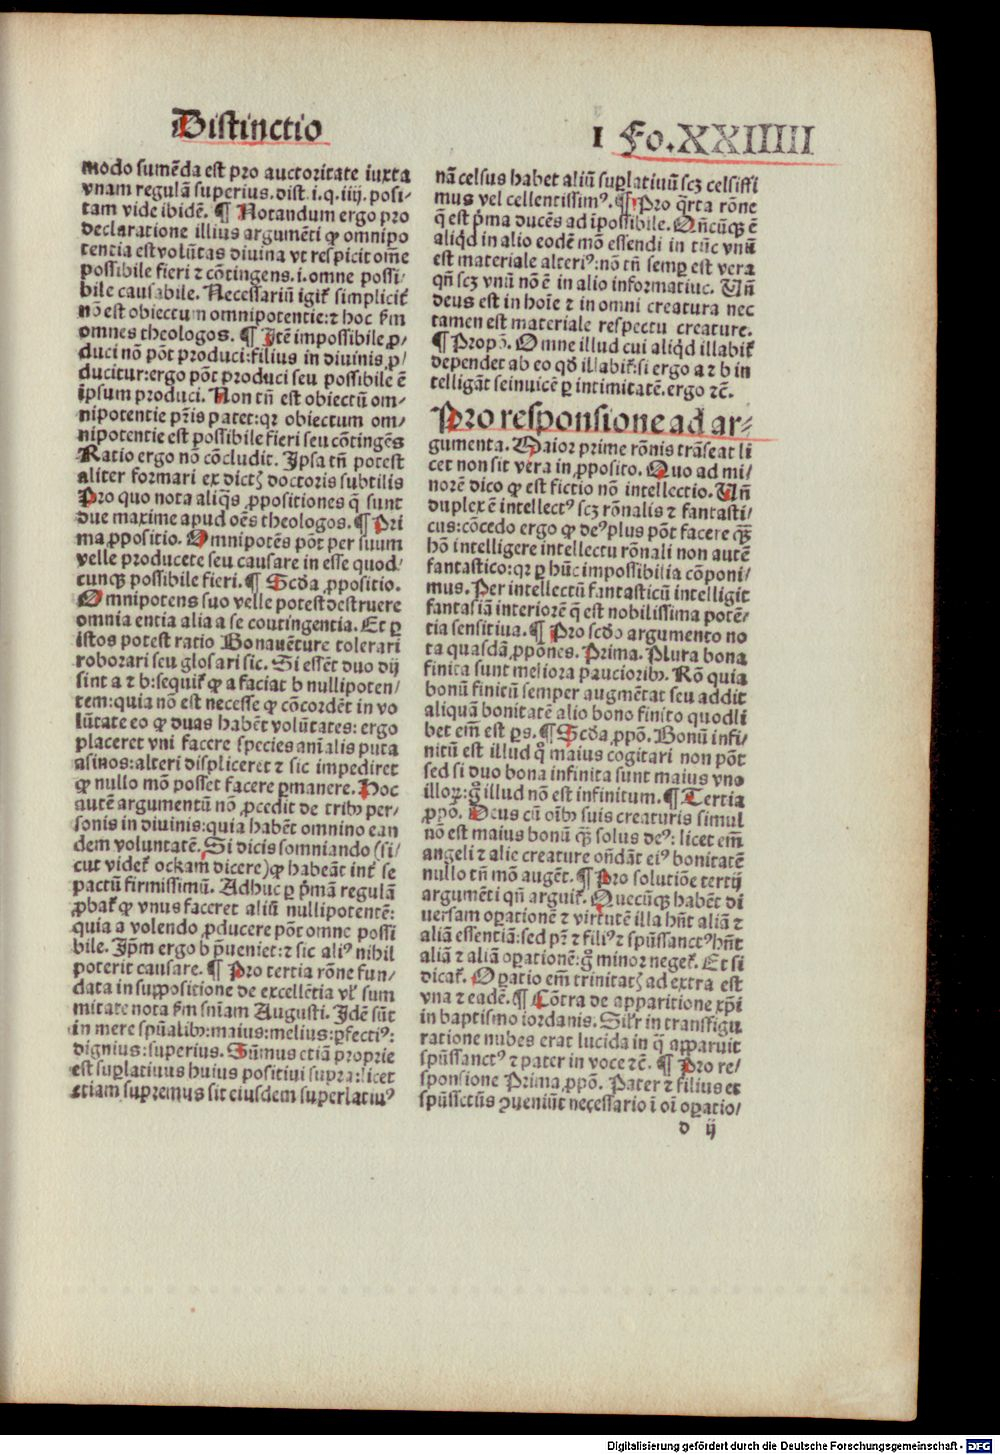 Distinctio
I Fo. XXIIIII
modo sumēda est pro auctoritate iuxta
vnam regulā superius. dist. i. q. iiij. posi⸗
tam vide ibidē. ¶ Notandum ergo pro
declaratione illius argumēti ꝙ omnipo
tentia est volūtas diuina vt respicit om̄e
possibile fieri ⁊ cōtingens. i. omne possi⸗
bile causabile. Necessariū igit᷑ simplicit᷑
nō est obiectum omnipotentie: ⁊ hoc ẜm
omnes theologos. ¶ Itē impossibile ꝓ⸗
duci nō pōt produci: filius in diuinis ꝓ⸗
ducitur: ergo pōt produci seu possibile ē
ip̄sum produci. Non tn̄ est obiectū om⸗
nipotentie pr̄is patet: qꝛ obiectum om⸗
nipotentie est possibile fieri seu cōtingēs
Ratio ergo nō cōcludit. Ipsa tn̄ potest
aliter formari ex dictꝭ doctoris subtilis
Pro quo nota aliq̄s ꝓpositiones q̄ sunt
due maxime apud oēs theologos. ¶ Pri
ma ꝓpositio. Omnipotēs pōt per suum
velle producere seu causare in esse quod⸗
cunqꝫ possibile fieri. ¶ Scd̄a ꝓpositio.
Omnipotens suo velle potest destruere
omnia entia alia a se contingentia. Et ꝑ
istos potest ratio Bonauēture tolerari
roborari seu glosari sic. Si essēt duo dij
sint a ⁊ b: sequit᷑ ꝙ a faciat b nullipoten⸗
tem: quia nō est necesse ꝙ cōcordēt in vo
lūtate eo ꝙ duas habēt volūtates: ergo
placeret vni facere species aīalis puta
asinos: alteri displiceret ⁊ sic impediret
ꝙ nullo mō posset facere ꝑmanere. Hoc
autē argumentū nō ꝓcedit de tribꝰ per⸗
sonis in diuinis: quia habēt omnino ean
dem voluntatē. Si dicis somniando (si⸗
cut videt᷑ ockam dicere) ꝙ habeāt int᷑ se
pactū firmissimū. Adhuc ꝑ pͥmā regulā
ꝓbat᷑ ꝙ vnus faceret aliū nullipotentē:
quia a volendo ꝓducere pōt omne possi
bile. Ip̄m ergo b p̄ueniet: ⁊ sic aliꝰ nihil
poterit causare. ¶ Pro tertia rōne fun⸗
data in suppositione de excellētia vl᷑ sum
mitate nota ẜm sn̄iam Augusti. Idē sūt
in mere spūalibꝰ: maius: melius: ꝑfectiꝰ:
dignius: superius. Sūmus etiā proprie
est suꝑlatiuus huius positiui supra: licet
etiam supremus sit eiusdem superlatiuꝰ
nā celsus habet aliū suꝑlatiuū scꝫ celsissi
mus vel cellentissimꝰ. ¶ Pro q̄rta rōne
q̄ est pͥma ducēs ad īpossibile. Qn̄cūqꝫ ē
aliqͥd in alio eodē mō essendi in tūc vnū
est materiale alteriꝰ: nō tn̄ semꝑ est vera
qn̄ scꝫ vnū nō ē in alio informatiue. Un̄
deus est in hoīe ⁊ in omni creatura nec
tamen est materiale respectu creature.
¶ Propō. Omne illud cui aliqͥd illabit᷑
dependet ab eo qd̄ illabit᷑: si ergo a ⁊ b in
telligāt seinuicē ꝑ intimitatē. ergo ⁊c̄.
Pro responsione ad ar⸗
gumenta. Maior prime rōnis trāseat li
cet non sit vera in ꝓposito. Quo ad mi⸗
norē dico ꝙ est fictio nō intellectio. Un̄
duplex ē intellectꝰ scꝫ rōnalis ⁊ fantasti⸗
cus: cōcedo ergo ꝙ deꝰ plus pōt facere qꝫ̄
hō intelligere intellectu rōnali non autē
fantastico: qꝛ ꝑ hūc impossibilia cōponi⸗
mus. Per intellectū fantasticū intelligit
fantasiā interiorē q̄ est nobilissima potē⸗
tia sensitiua. ¶ Pro scd̄o argumento no
ta quasdā ꝓpōnes. Prima. Plura bona
finita sunt meliora pauciorībꝰ. Rō quia
bonū finitū semper augmētat seu addit
aliquā bonitatē alio bono finito quodli
bet em̄ est ꝑs. ¶ Scd̄a ꝓpō. Bonū infi⸗
nitū est illud qͦ maius cogitari non pōt
sed si duo bona infinita sunt maius vno
illoꝝ: gͦ illud nō est infinitum. ¶ Tertia
ꝓpō. Deus cū oībꝰ suis creaturis simul
nō est maius bonū qꝫ̄ solus deꝰ: licet em̄
angeli ⁊ alie creature on̄dāt eiꝰ bonitatē
nullo tn̄ mō augēt. ¶ Pro solutiōe tertij
argumēti qn̄ arguit᷑. Quecūqꝫ habēt di
uersam oꝑationē ⁊ virtutē illa hn̄t aliā ⁊
aliā essentiā: sed pr̄ ⁊ filiꝰ ⁊ spūssanctꝰ hn̄t
aliā ⁊ aliā oꝑationē: gͦ minor neget᷑. Et si
dicat᷑. Oꝑatio em̄ trinitatꝭ ad extra est
vna ⁊ eadē. ¶ Cōtra de apparitione xp̄i
in baptismo iordanis. Sil᷑r in transfigu
ratione nubes erat lucida in q̄ apparuit
spūssanctꝰ ⁊ pater in voce ⁊c̄. ¶ Pro re⸗
sponsione Prima ꝓpō. Pater ⁊ filius et
spūssctūs ꝯueniūt necessario ī oī oꝑatio⸗
d ij
Digitalisierung gefördert durch die Deutsche Forschungsgemeinschaft - DFG